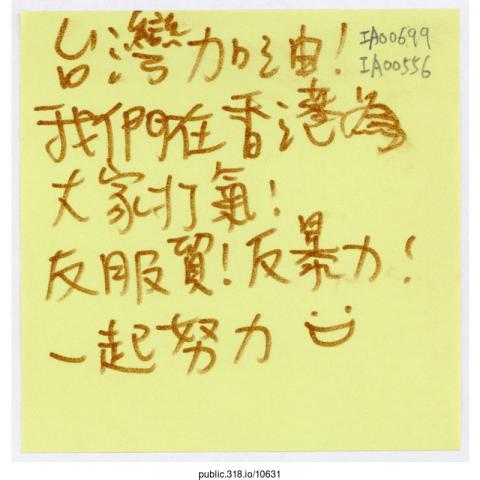 台灣加油！
IA00699
IA00556
我們在香港為
大家打氣！
反服貿！反暴力！
一起努力
public.318.io/10631